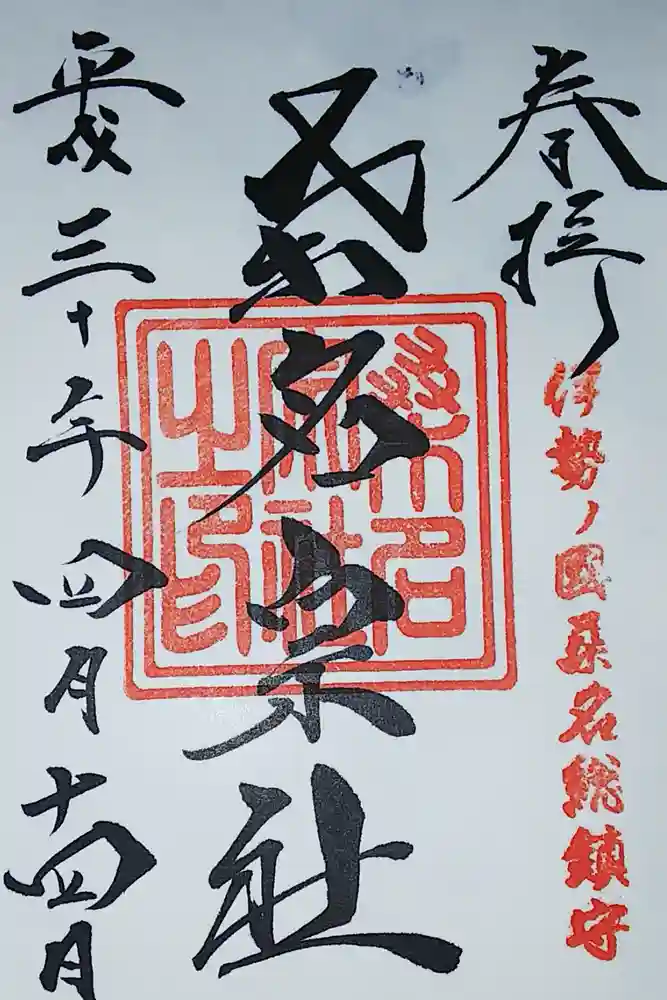 奉拝
伊勢ノ國桑名総鎮守
桑名宗社
桑名
宗社
之印
平成三十年四月十四日